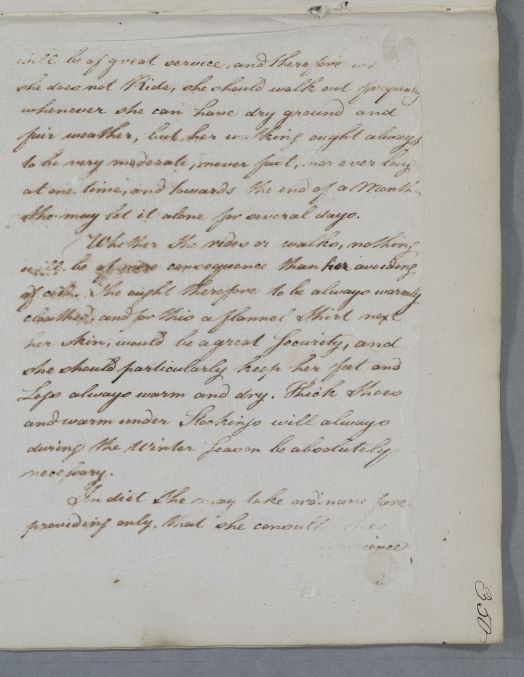 will be of great service, and therefore
she does not Ride, she should walk out frequently
whenever she can have dry ground and
fair weather, but her walking ought always
to be very moderate, never fast, nor ever long
at one time, and towards the end of a Month
she may let it alone for several days.
Whether she rides or walks, nothing
will be of more consequence than her avoiding
of cold. She ought therefore to be always warmly
cloathed, and for this a flannel Shirt next
her Skin, would be a great Security, and
she should particularly keep her feet and
Legs always warm and dry. Thick Shoes
and warm under Stockings will always
during the Winter Season be absolutely
necessary.
In diet she may take ordinary fare
providing only, that she consult
350